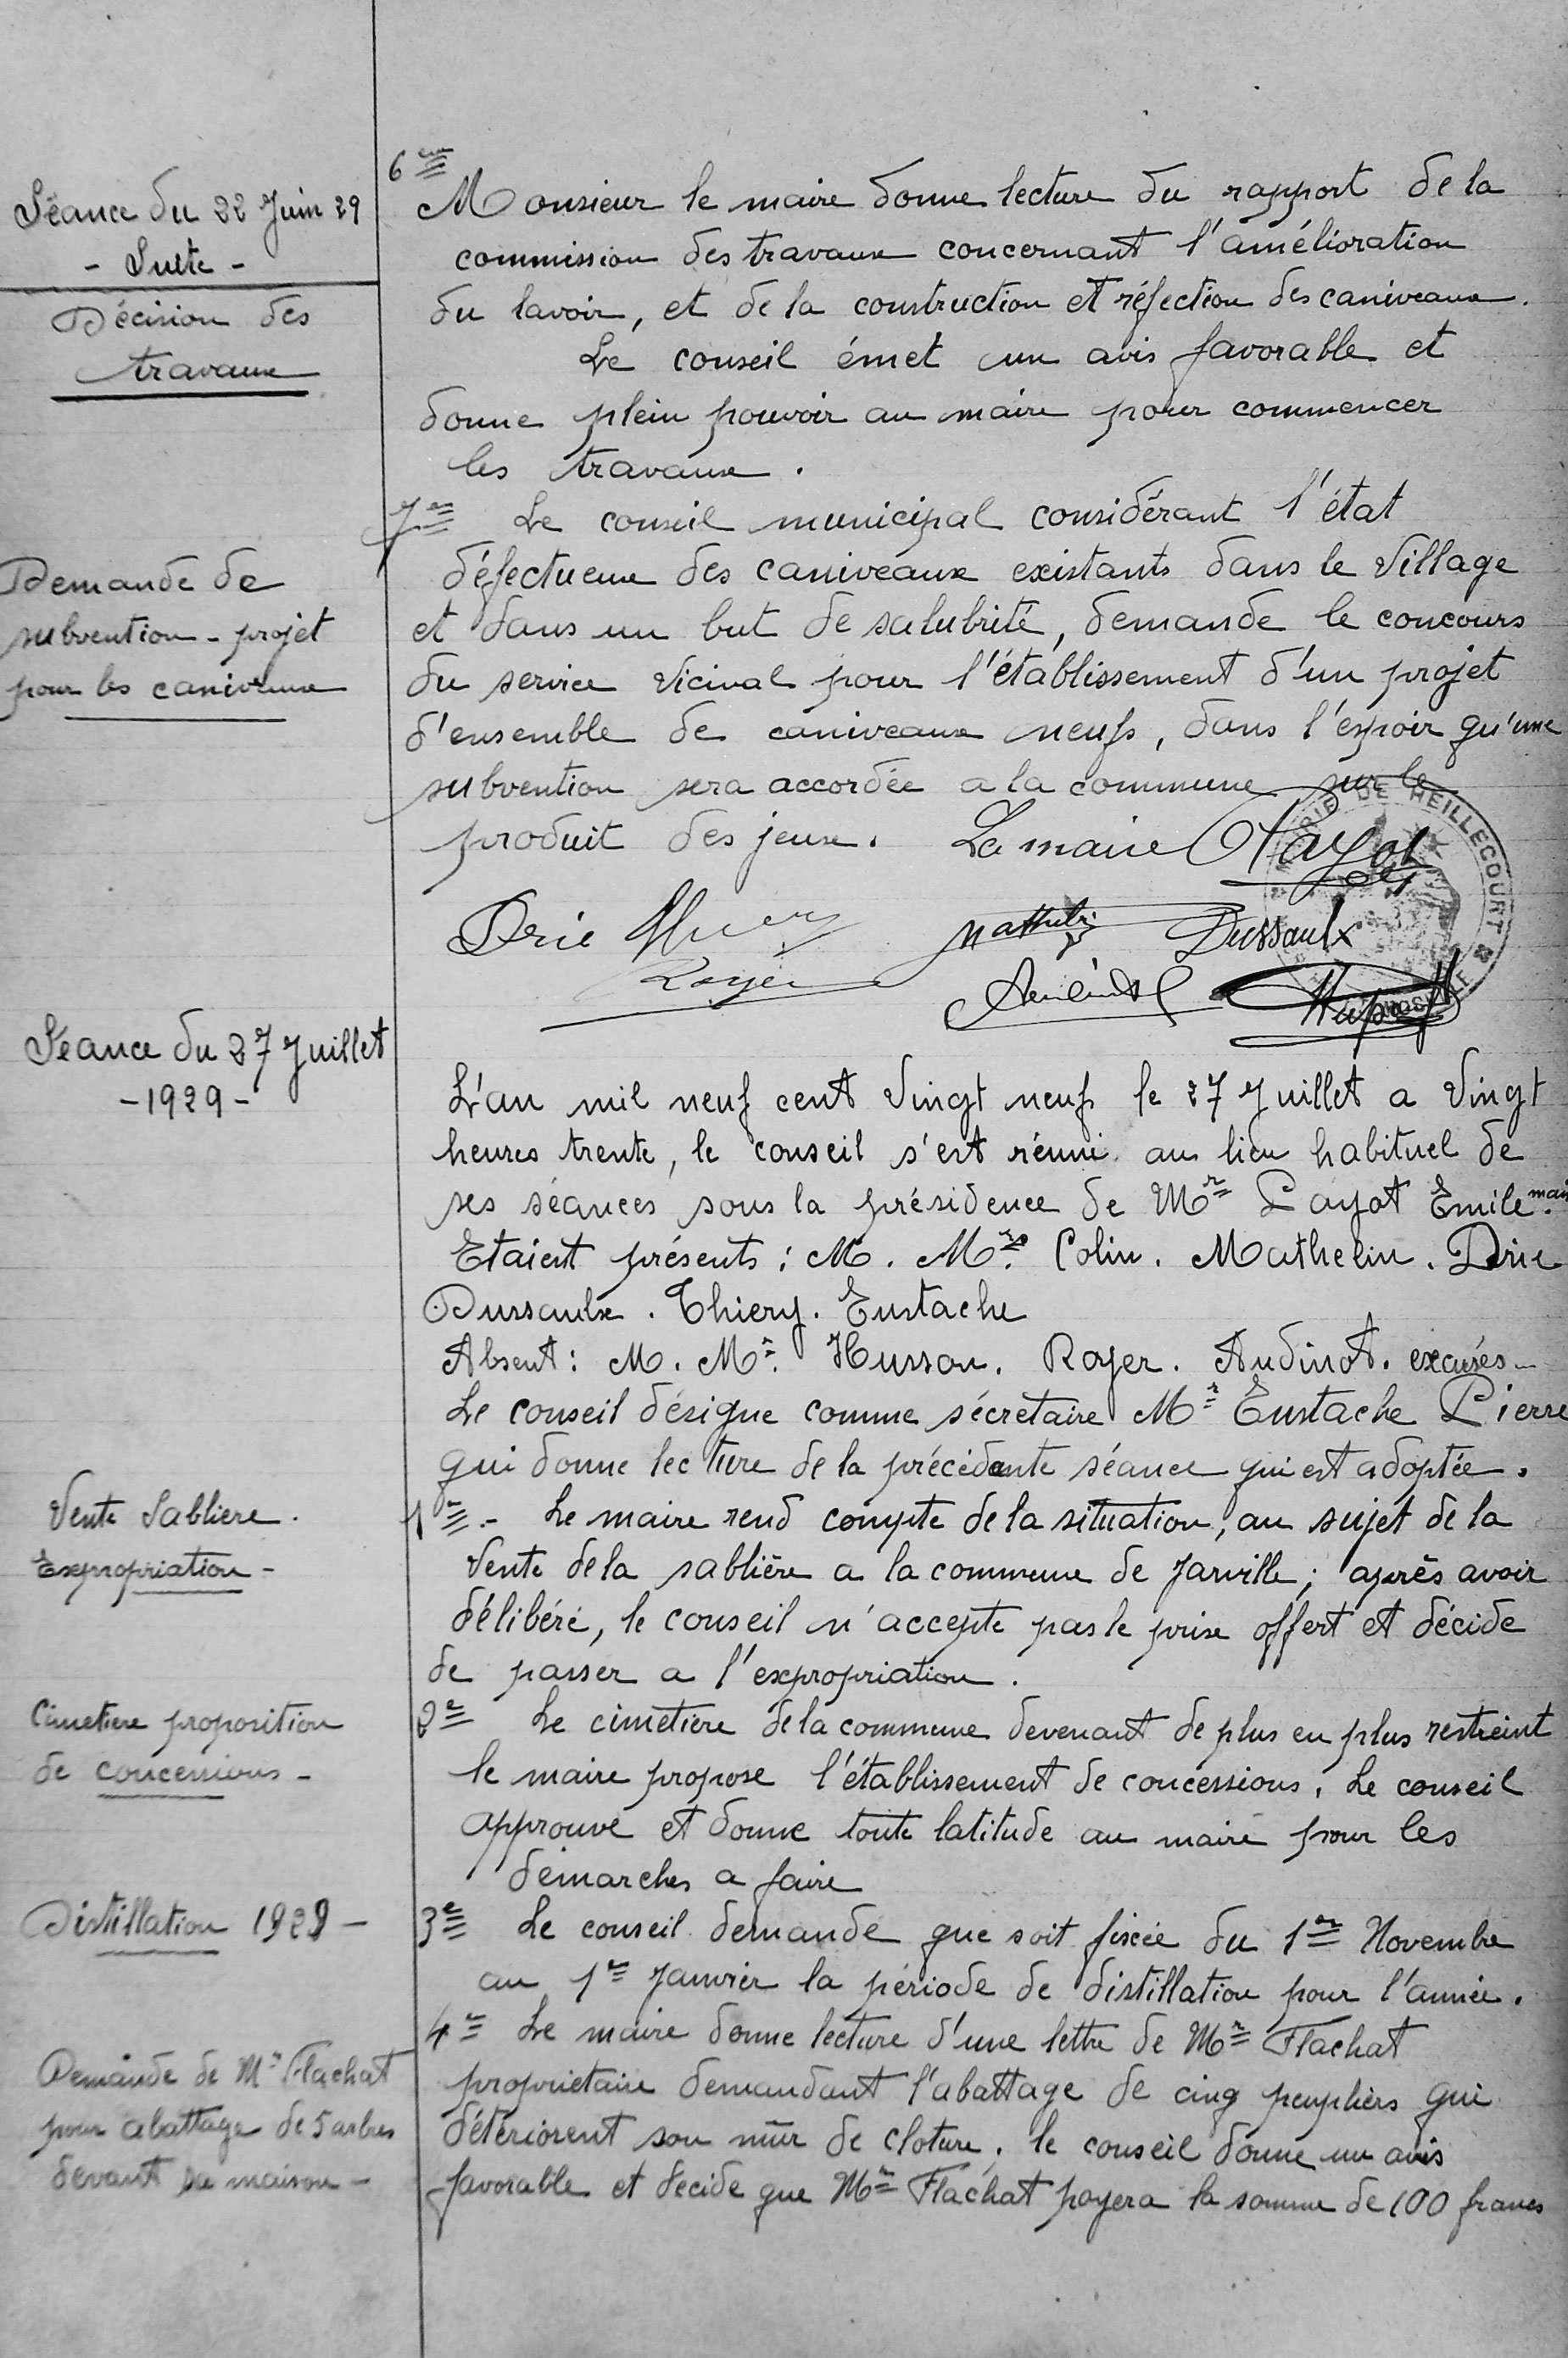 Séance du 22 Juin 29
- Suite -
Décision des
travaux
6em
Monsieur le maire donne lecture du rapport de la
commission des travaux concernant l'amélioration
du lavoir, et de la construction et réfection des caniveaux.
Le conseil émet un avis favorable et
donne plein pouvoir au maire pour commencer
les travaux.
Demande de
subvention - projet
pour les caniveaux
7e Le conseil municipal considérant l'état
défectueux des caniveaux existants dans le village
et dans un but de salubrité, demande le concours
du service vicinal pour l'établissement d'un projet
d'ensemble de caniveaux neufs, dans l'espoir qu'une
subvention sera accordée a la commune sur le
produit des jeux. Le maire Payot
MAIRIE DE HEILLECOURT
Drie
Mathelin Dussaulx
Royer
Séance du 27 Juillet
- 1929 -
L'an mil neuf cent vingt neuf le 27 Juillet a vingt
heures trente, le conseil s'est réuni au lieu habituel de
ses séances sous la présidence de Mr Payot Emile. maire
Etaient présents : M. Mrs. Colin. Mathelin. Drie
Dussaulx. Thiery. Eustache
Absent : M. Mr. Husson. Royer. Audinot. excusés -
Le conseil désigne comme sécretaire Mr Eustache Pierre
qui donne lecture de la précédante séance qui est adoptée.
Vente Sabliere.
Expropriation -
1e - Le maire rend compte de la situation, au sujet de la
vente de la sablière a la commune de Jarville ; après avoir
délibéré, le conseil n'accepte pas le prix offert et décide
de passer a l'expropriation.
Cimetiere proposition
de concessions -
2e Le cimetiere de la commune devenant de plus en plus restreint
le maire propose l'établissement de concessions. Le conseil
approuve et donne toute latitude au maire pour les
démarches a faire
Distillation 1929 -
3e Le conseil demande que soit fixée du 1er Novembre
au 1er Janvier la période de distillation pour l'année.
Demande de Mr Flachat
pour abattage de 5 arbres
devant sa maison -
4e Le maire donne lecture d'une lettre de Mr Flachat
proprietaire demandant l'abattage de cinq peupliers qui
détériorent son mûr de cloture ; le conseil donne un avis
favorable et decide que Mr Flachat payera la somme de 100 francs